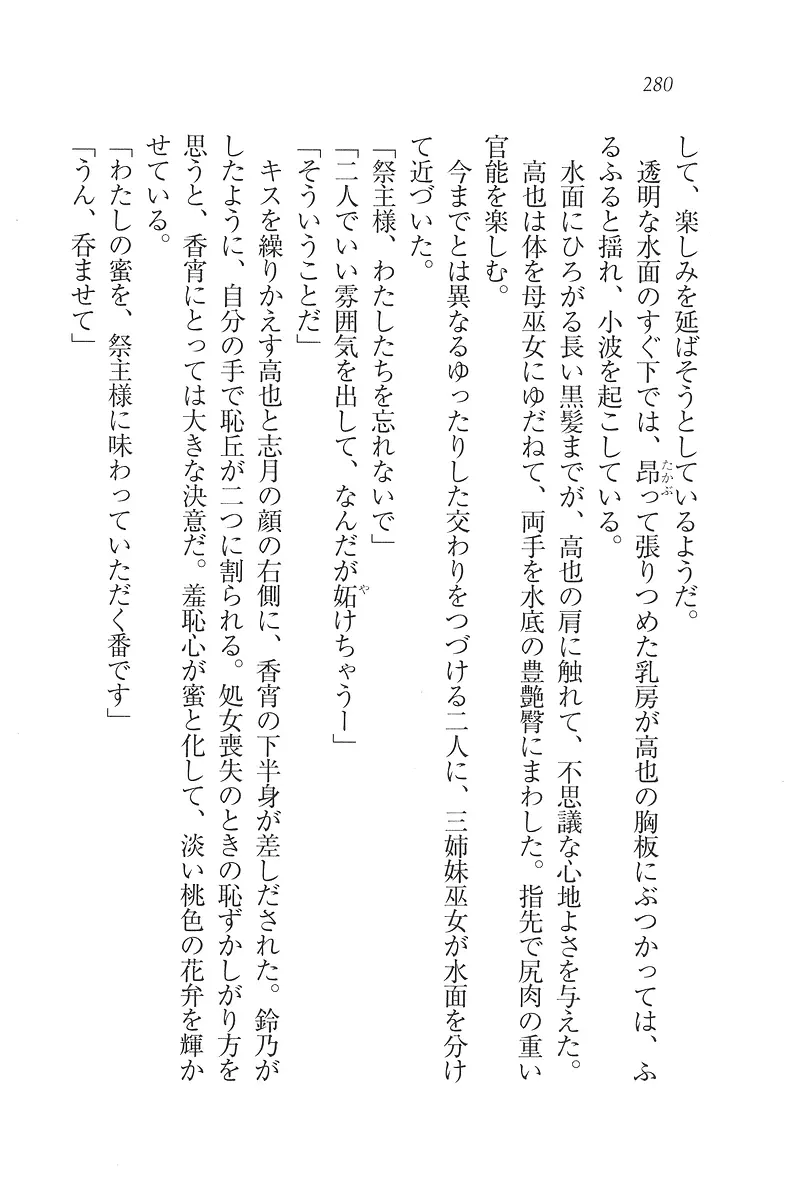 280
して、楽しみを延ばそうとしているようだ。
透明な水面のすぐ下では、昂って張りつめた乳房が高也の胸板にぶつかっては、ふ
たかぶ
るふると揺れ、小波を起こしている。
水面にひろがる長い黒髪までが、高也の肩に触れて、不思議な心地よさを与えた。
高也は体を母巫女にゆだねて、両手を水底の豊艶臀にまわした。指先で尻肉の重い
官能を楽しむ。
今までとは異なるゆったりした交わりをつづける二人に、三姉妹巫女が水面を分け
て近づいた。
「祭主様、わたしたちを忘れないで」
「二人でいい雰囲気を出して、なんだが妬けちゃうー」
や
「そういうことだ」
キスを繰りかえす高也と志月の顔の右側に、香宵の下半身が差しだされた。鈴乃が
したように、自分の手で恥丘が二つに割られる。処女喪失のときの恥ずかしがり方を
思うと、香宵にとっては大きな決意だ。羞恥心が蜜と化して、淡い桃色の花弁を輝か
せている。
「わたしの蜜を、祭主様に味わっていただく番です」
「うん、呑ませて」